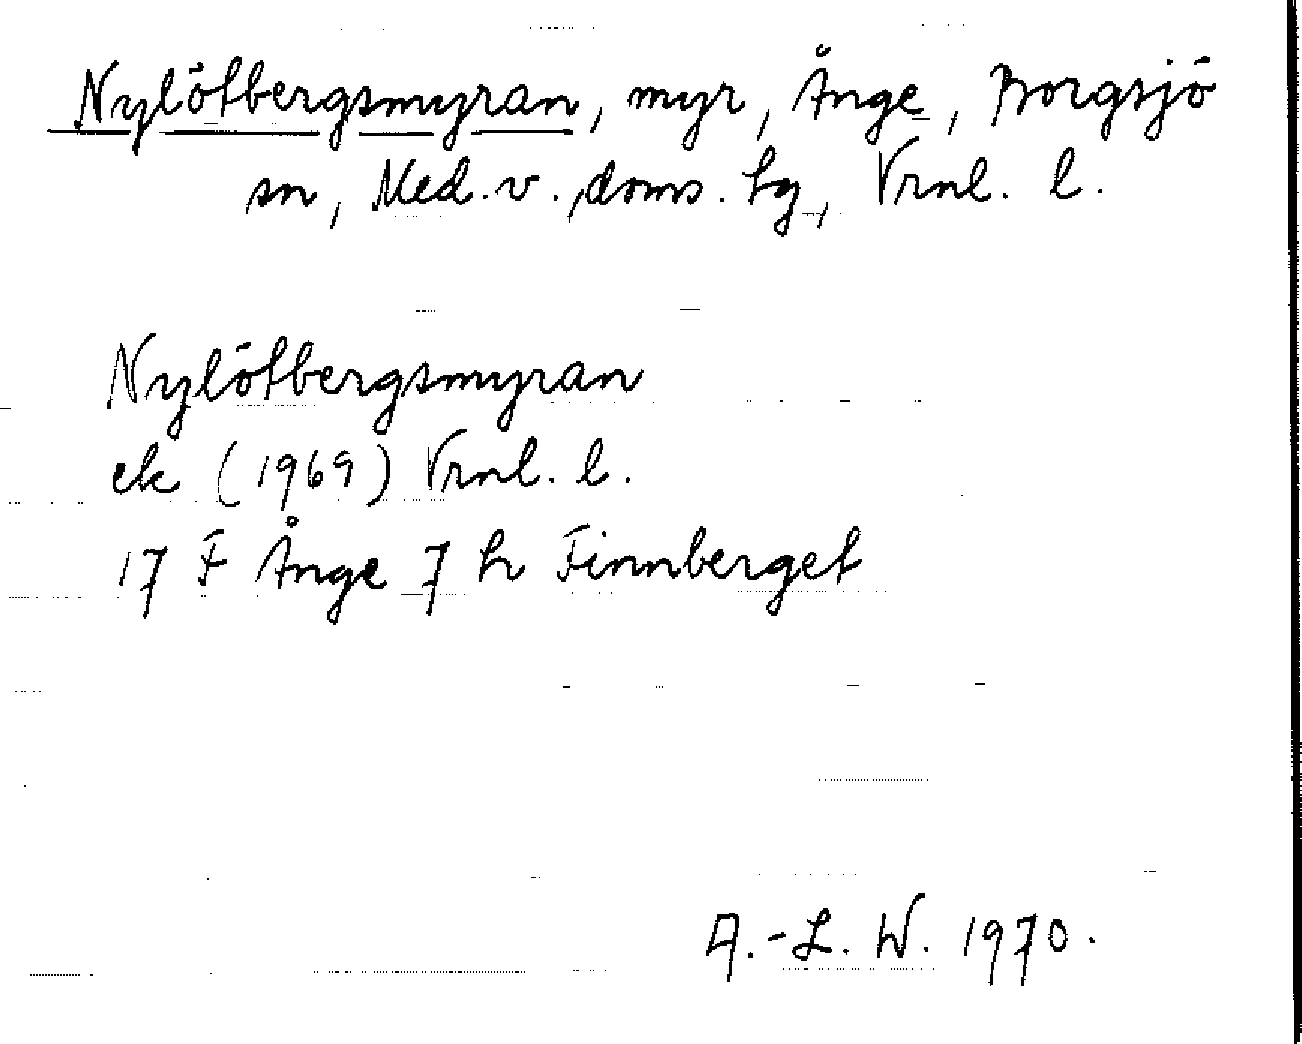 Nylötbergsmyran, myr, Ånge, Borgsjö
sn, Med. v., doms. hg, Vrnl. l.
Nylötbergsmyran
ek (1969) Vrnl. l.
17 F Ånge 7 h Finnberget
A.-L. W. 1970.